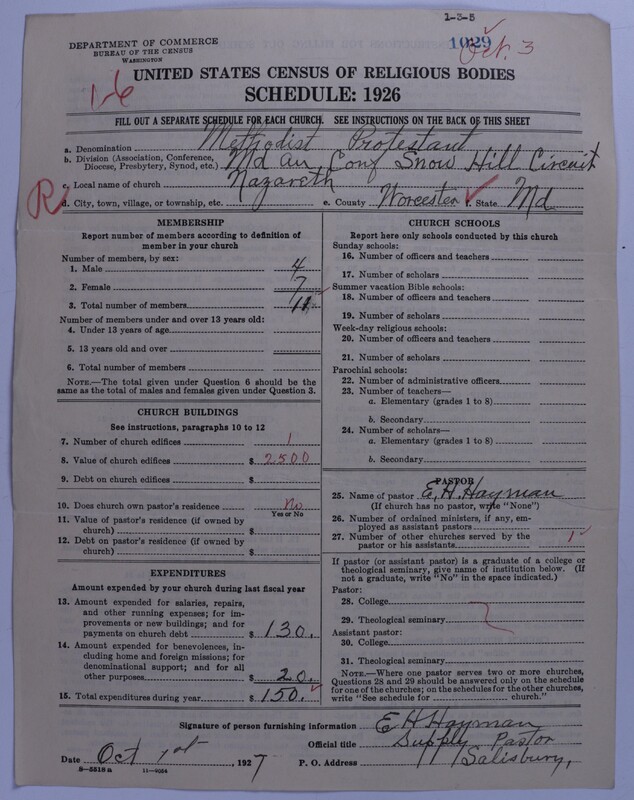 1-3-5
DEPARTMENT OF COMMERCE
BUREAU OF THE CENSUS
WASHINGTON
1029
Oct. 3
1-6
UNITED STATES CENSUS OF RELIGIOUS BODIES
SCHEDULE: 1926
FILL OUT A SEPARATE SCHEDULE FOR EACH CHURCH. SEE INSTRUCTIONS ON THE BACK OF THIS SHEET
a. Denomination Methodist Protestant
b. Division (Association, Conference, Diocese, Presbytery, Synod, etc.) Md an Conf Snow Hill Circuit
c. Local name of church Nazareth
R
d. City, town, village, or township, etc. e. County Worcester f. State Md
MEMBERSHIP
Report number of members according to definition of
member in your church
Number of members, by sex:
1. Male 4
2. Female 7
3. Total number of members 11
Number of members under and over 13 years old:
4. Under 13 years of age
5. 13 years old and over
6. Total number of members
NOTE.—The total given under Question 6 should be
same as the total of males and females given under Question 3.
CHURCH BUILDINGS
See instructions, paragraphs 10 to 12
7. Number of church edifices 1
8. Value of church edifices $ 2500
9. Debt on church edifices $
10. Does church own pastor's residence No
Yes or No
11. Value of pastor's residence (if owned by
church) $
12. Debt on pastor's residence (if owned by
church) $
EXPENDITURES
Amount expended by your church during last fiscal year
13. Amount expended for salaries, repairs,
and other running expenses; for im-
provements or new buildings; and for
payments on church debt $ 130.
14. Amount expended for benevolences, in-
cluding home and foreign missions; for
denominational support; and for all
other purposes 20.
15. Total expenditures during year $ 150.
CHURCH SCHOOLS
Report here only schools conducted by this church
Sunday schools:
16. Number of officers and teachers
17. Number of scholars
Summer vacation Bible schools:
18. Number of officers and teachers
19. Number of scholars
Week-day religious schools:
20. Number of officers and teachers
21. Number of scholars
Parochial schools:
22. Number of administrative officers
23. Number of teachers—
a. Elementary (grades 1 to 8)
b. Secondary
24. Number of scholars—
a. Elementary (grades 1 to 8)
b. Secondary
PASTOR
25. Name of pastor E. H. Hayman
(If church has no pastor, write "None")
26. Number of ordained ministers, if any, em-
ployed as assistant pastors
27. Number of other churches served by the
pastor or his assistants 1
If pastor (or assistant pastor) is a graduate of a college or
theological seminary, give name of institution below. (If
not a graduate, write "No" in the space indicated.)
Pastor:
28. College
29. Theological seminary
Assistant pastor:
30. College
31. Theological seminary
NOTE.—Where one pastor serves two or more churches,
Questions 28 and 29 should be answered only on the schedule
for one of the churches; on the schedules for the other churches,
write "See schedule for church."
Signature of person furnishing information E H Hayman
Official title Supply Pastor
Date Oct 1st, 1927 P. O. Address Salisbury,
8-5518a 11-9054